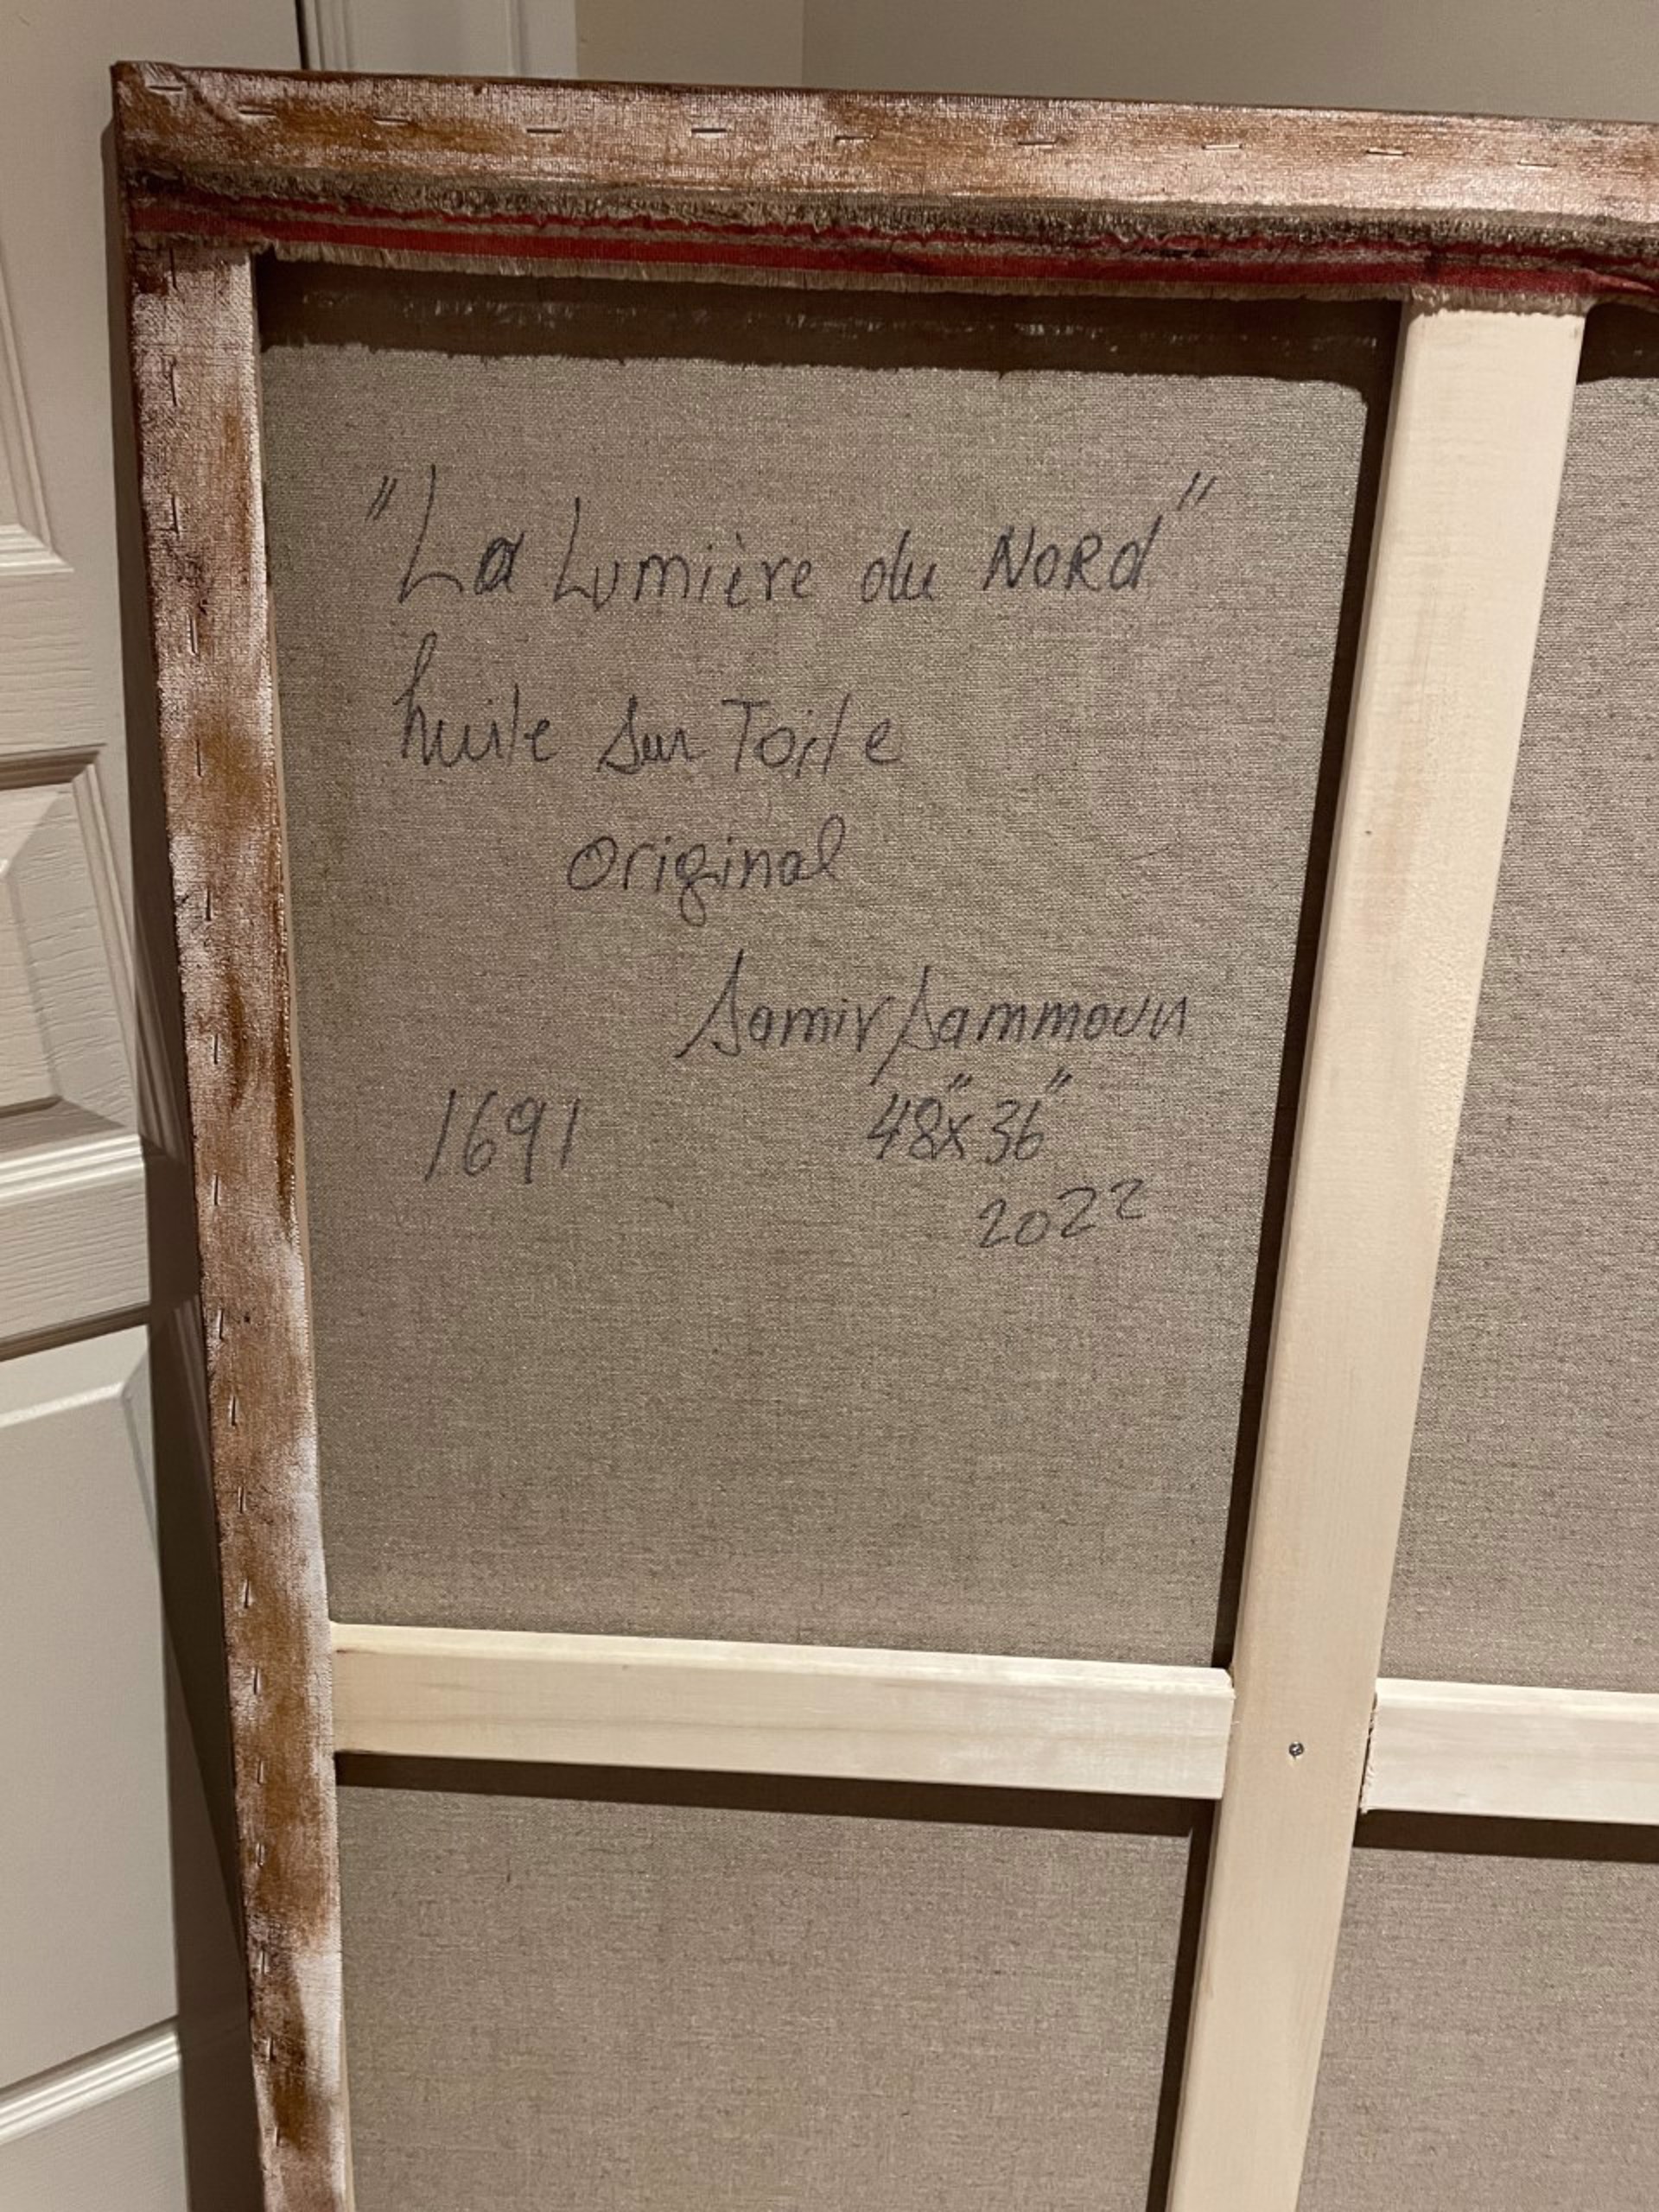 "La Lumière du NoRd"
huile sur Toile
original
Samir Sammoun
1691 48"x 36"
2022